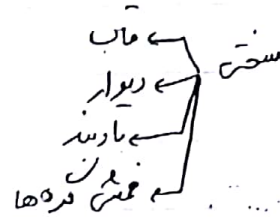 سختی
← قاب
← دیوار
← بادبند
← خمشی